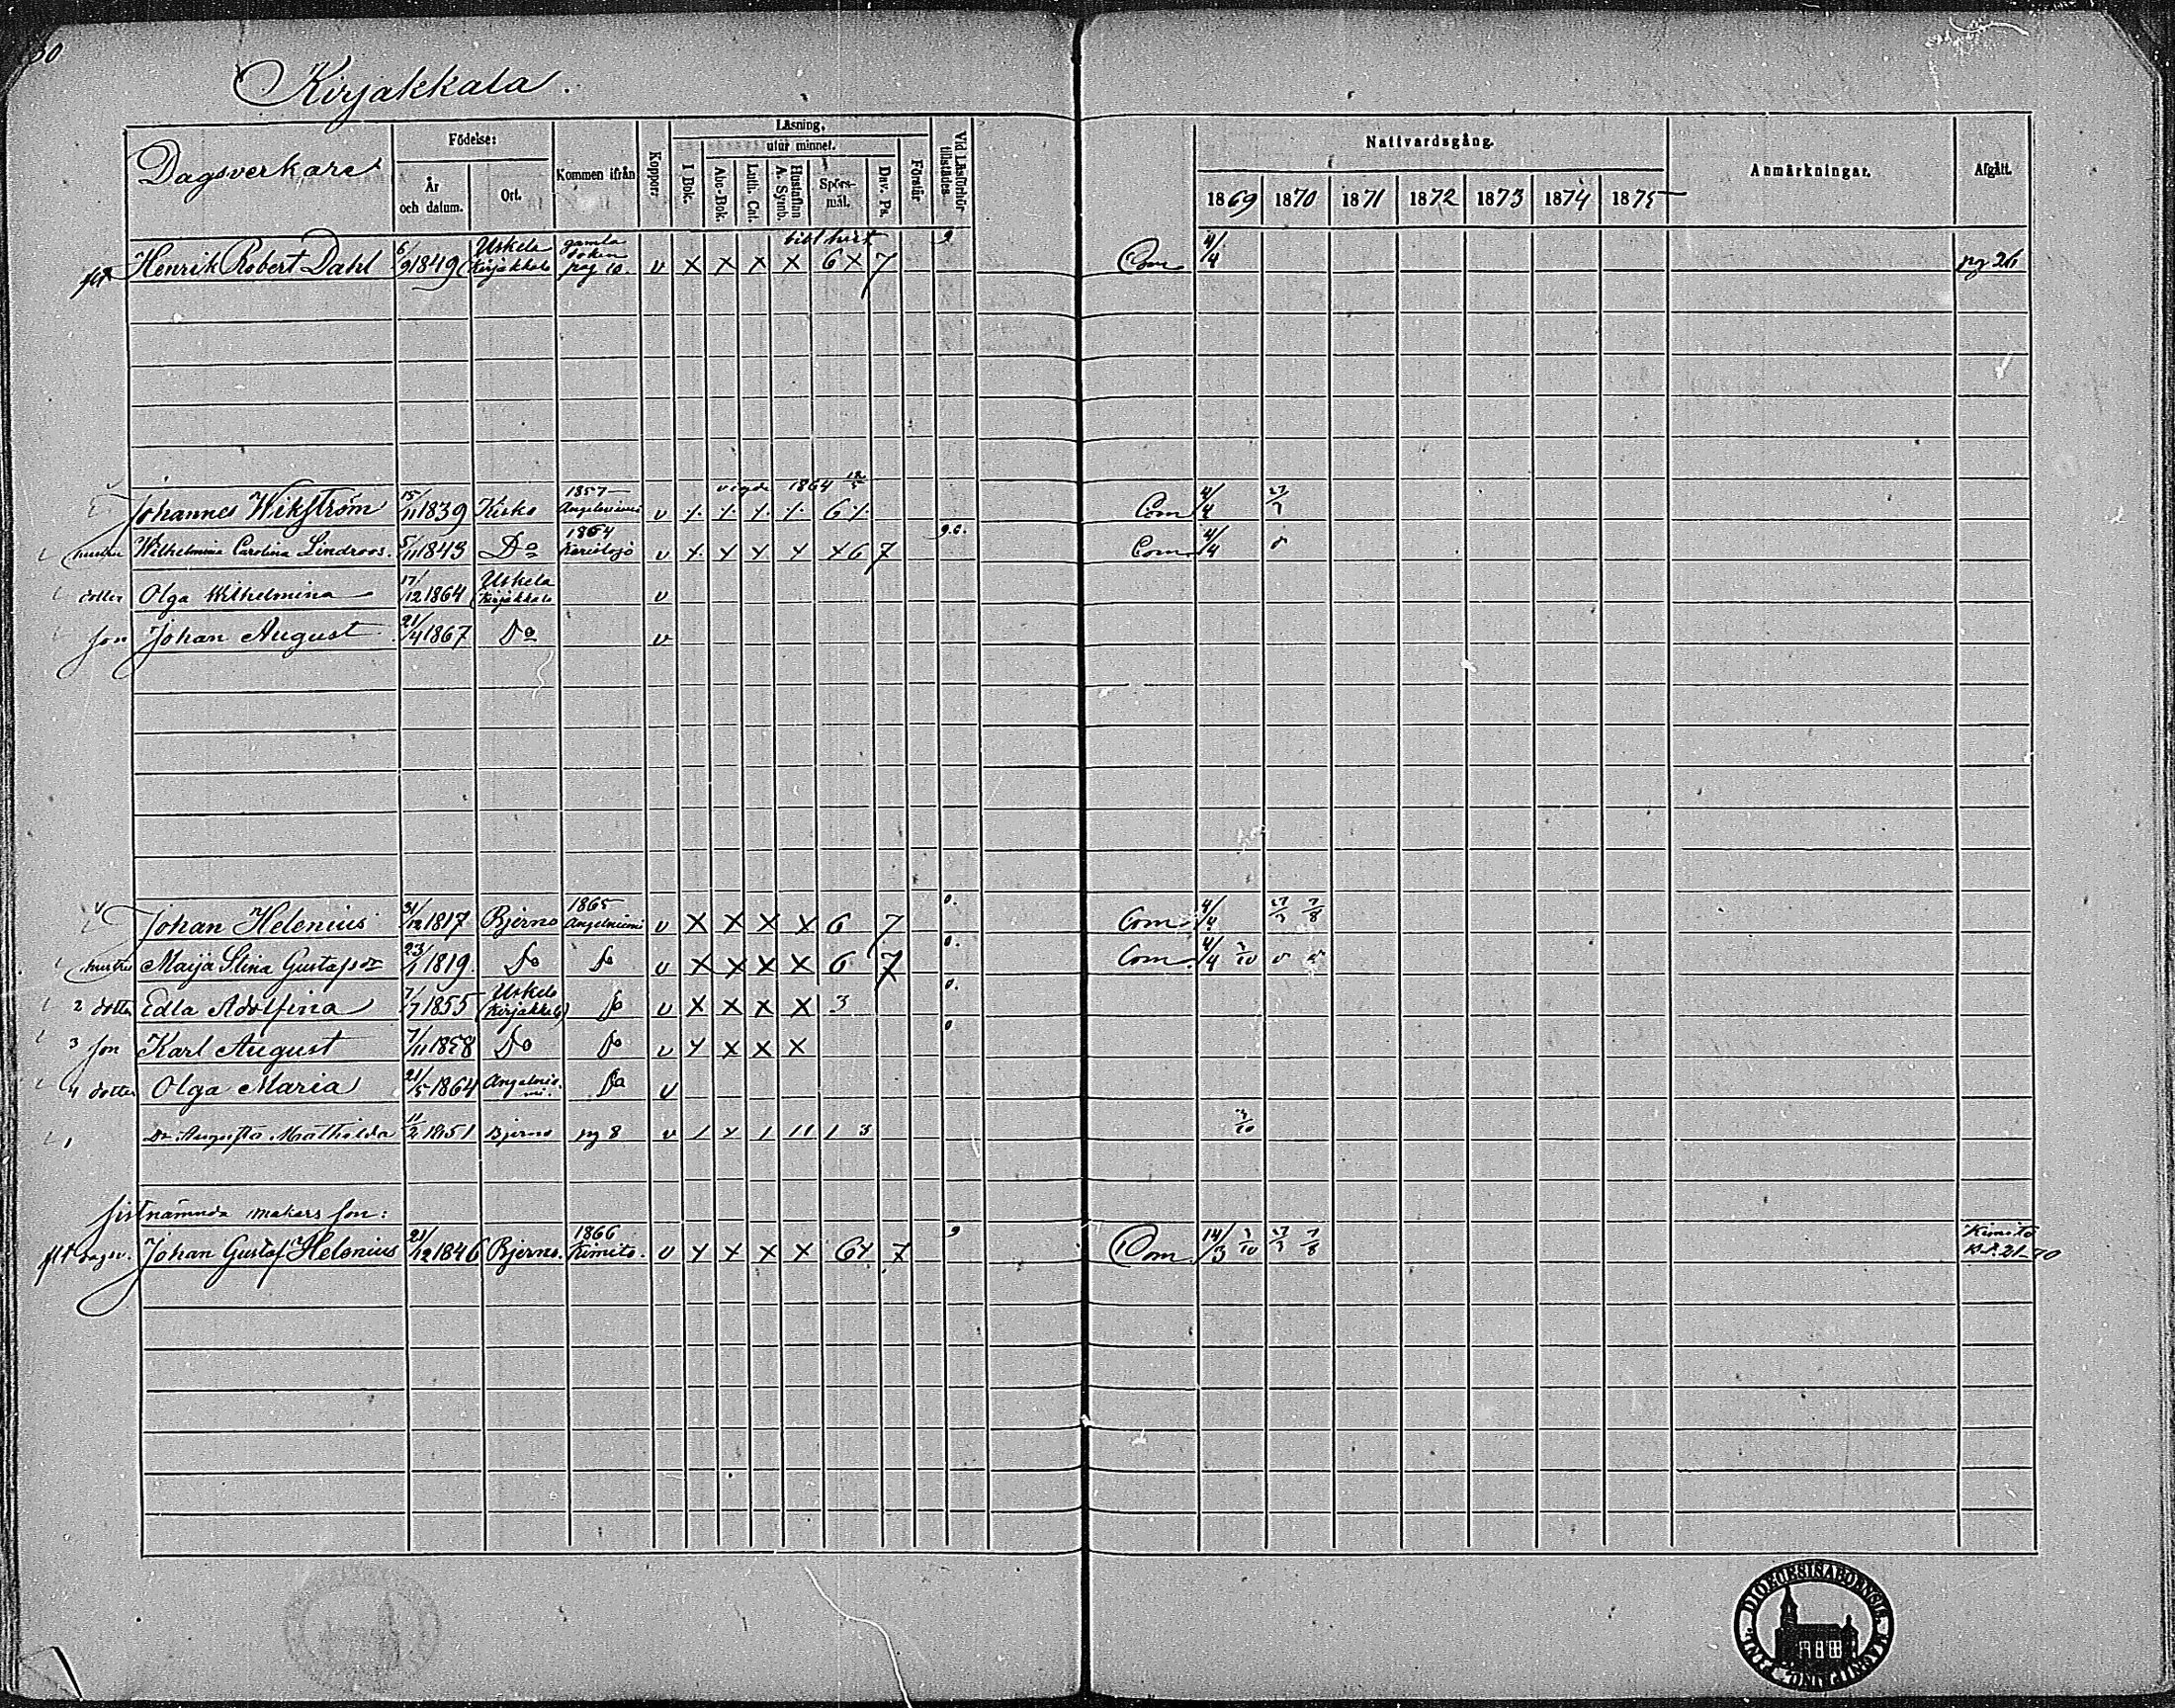 30
Kirjakkala.
Dagsverkare
Födelse:
År och datum.
Ort.
Kommen ifrån
Koppor:
Läsning,
I Bok.
utur minnet.
Abc-Bok.
Luth. Cat.
Hustaflan A. Symb.
Spörs-mål.
Dav. Ps.
Förstår
Vid Läsförhör tillstädes
Nattvardsgång.
1869 1870 1871 1872 1873 1874 1875
Anmärkningar.
Afgått.
Henrik Robert Dahl 6/9 1849 Uskela (Kirjakkala gamla boken pag 10 v x x x x 6 x 7 Com 4/4 pg 26
vigde 1864
Johannes Wikström 15/11 1839 Kisko 1857 Angelniemi v 6 Com 4/4
hustru Wilhelmina Carolina Lindroos. 5/11 1843 Do 1864 Karislojo v x x x x x 6 7 g.c. Com 4/4
dotter Olga Wilhelmina 17/12 1864 Uskela (Kirjakkala v
son Johan August 21/4 1867 Do v
Johan Helenius 31/12 1817 Bjerno 1865 Angelniemi v x x x x 6 7 0. Com 4/4 7/8
hustru Maija Stina Gustafsdr 23/1 1819 Do Do v x x x x 6 7 0. Com 4/4
2 dotter Edla Adolfina 7/7 1855 Uskela (Kirjakkala) Do v x x x x 3 0.
3 son Karl August 7/11 1858 Do Do v x x x x 0
4 dotter Olga Maria 21/5 1864 Angelniemi. Do v
1 Dr. Augusta Mathilda 11/2 1851 Bjerno pg 8 v 1 x 1 11 1 3
sistnämnda makars son:
Johan Gustaf Helenius 21/12 1846 Bjerno. 1866 Kimito. v x x x x 6x 7 9 Com. 14/3 7/8 Kimito
DIOECESIS ABOENSIS